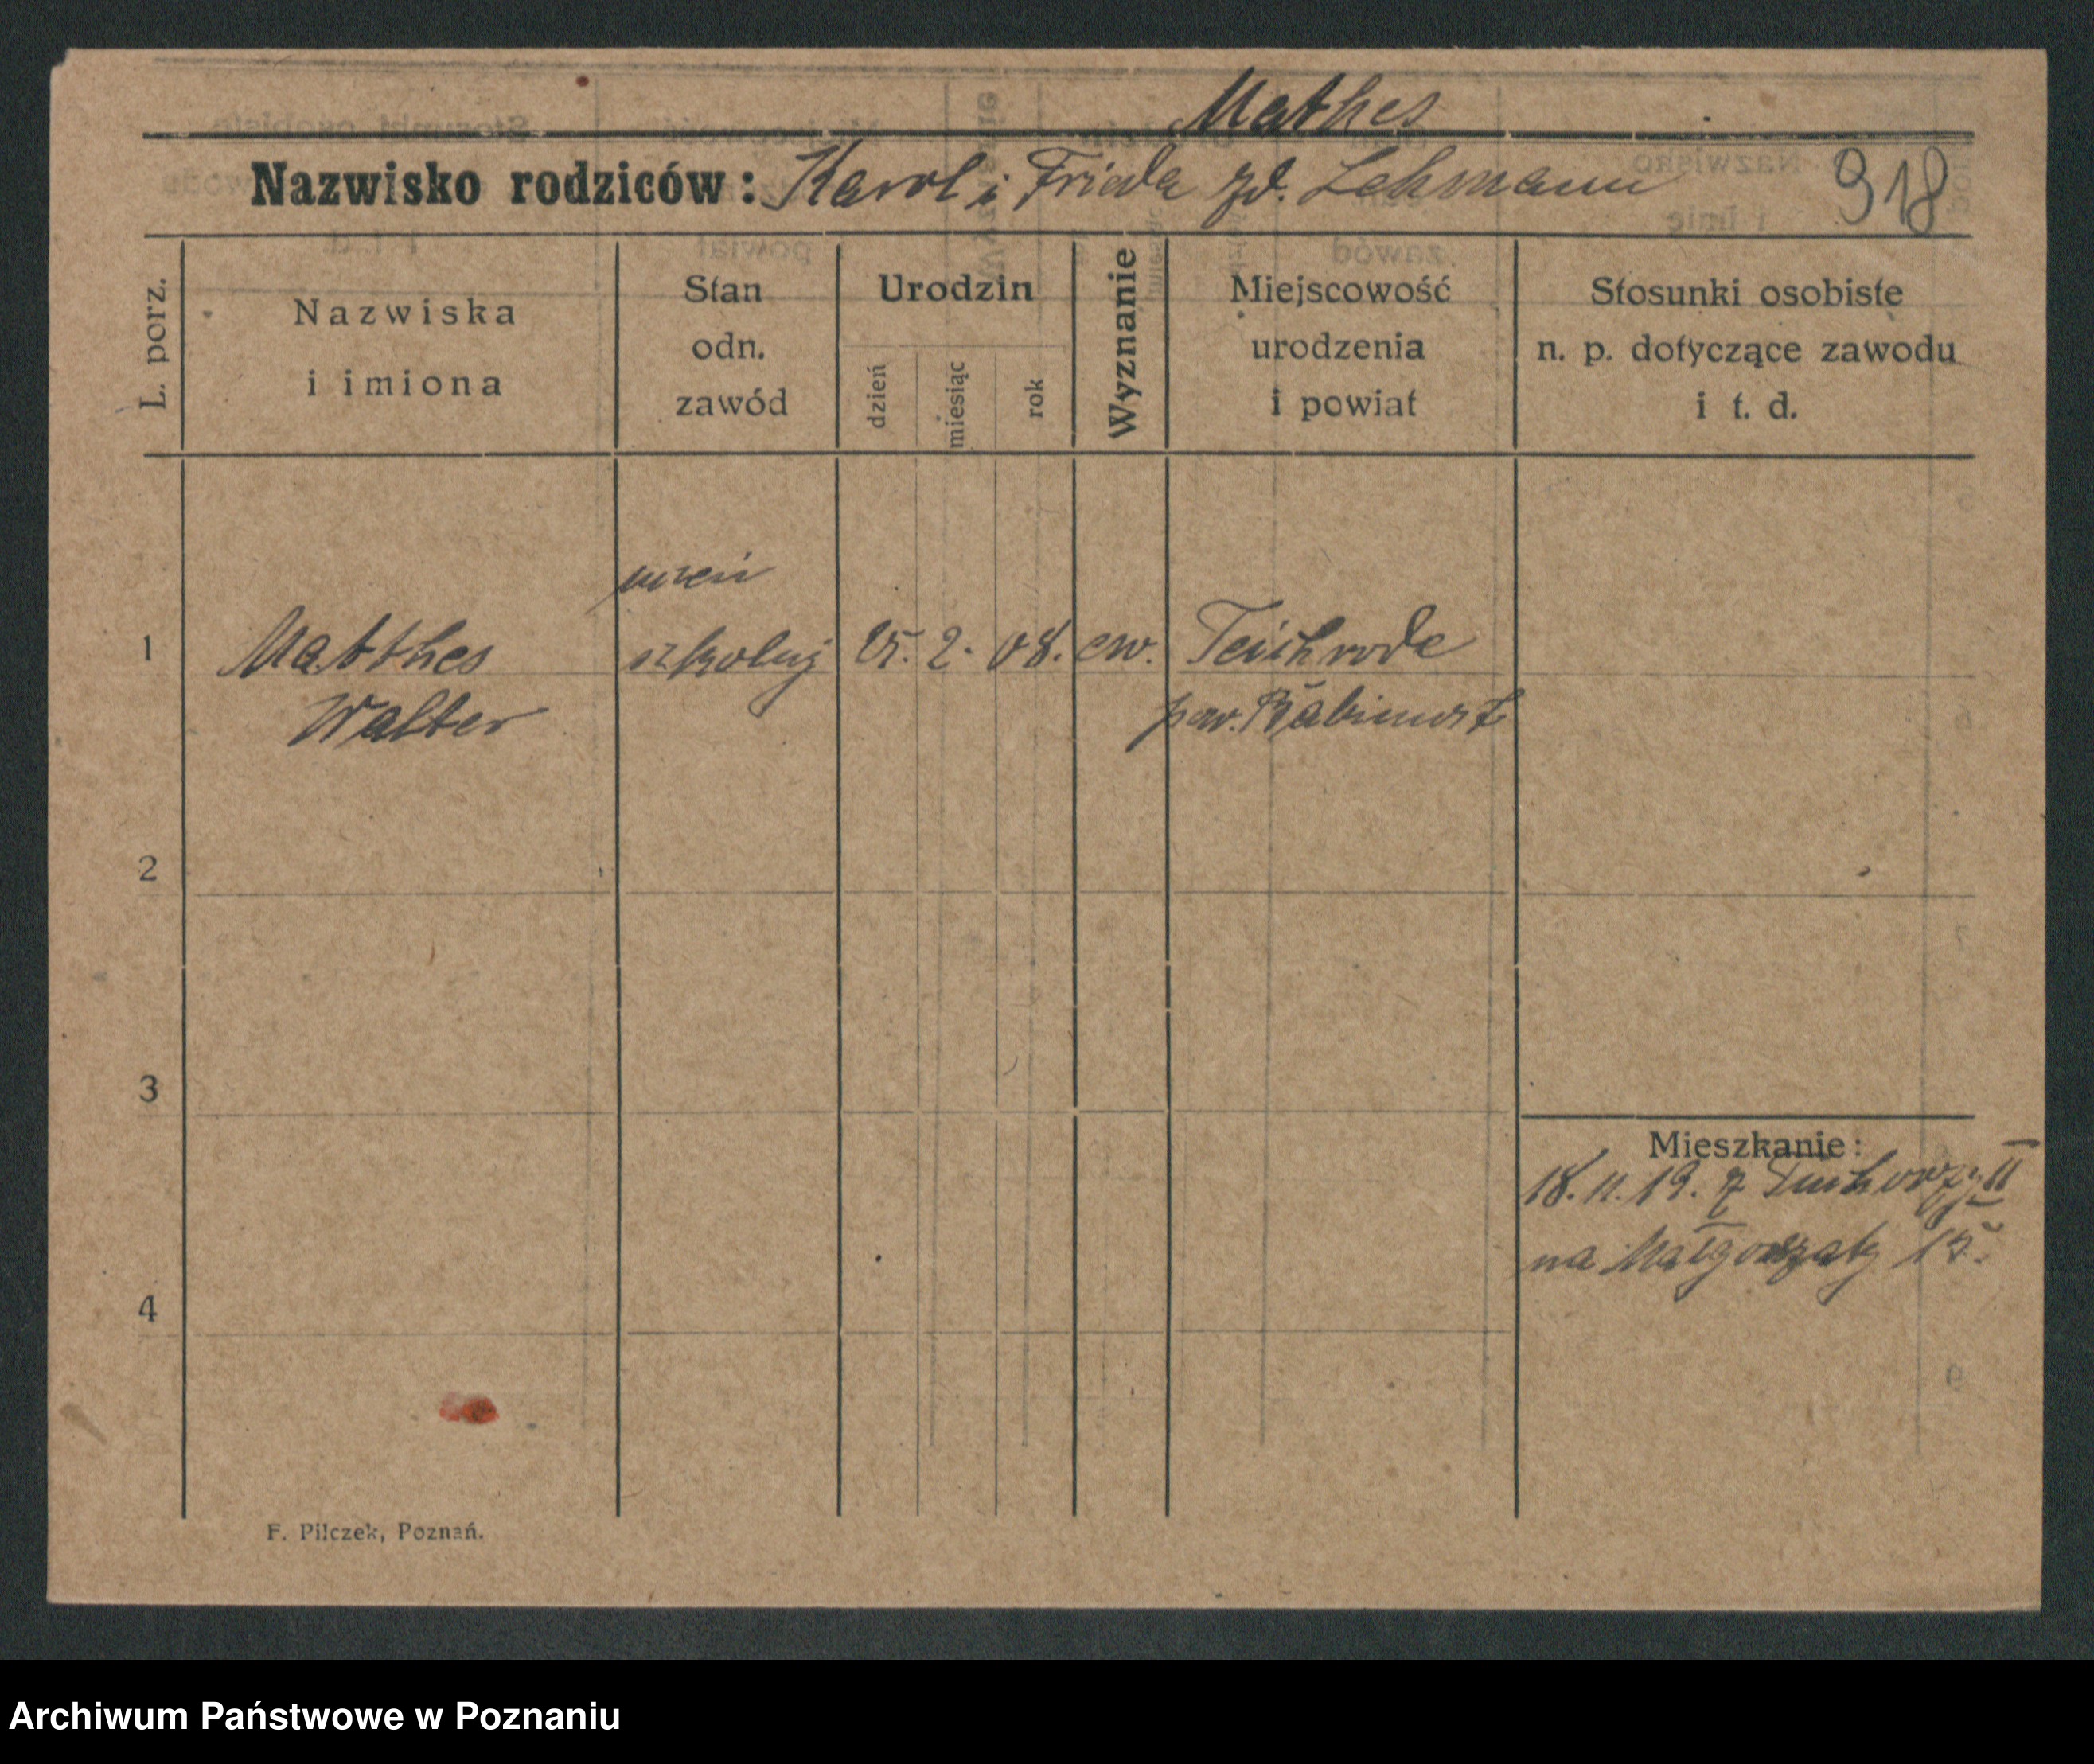 Mathes
Nazwisko rodziców: Karol i Frieda zd. Lehmann 918
L. porz.
Nazwiska
i imiona
Stan
odn.
zawód
Urodzin
dzień
miesiąc
rok
Wyznanie
Miejscowość
urodzenia
i powiat
Stosunki osobiste
n. p. dotyczące zawodu
i t. d.
uczeń
1 Matthes szkolny 25. 2. 08. ew. Teichrode
Walter pow. Babimost
2
3
Mieszkanie:
18.11.19. z Tuchorzy II
na Małgorzaty 15.
4
F. Pilczek, Poznań.
Archiwum Państwowe w Poznaniu